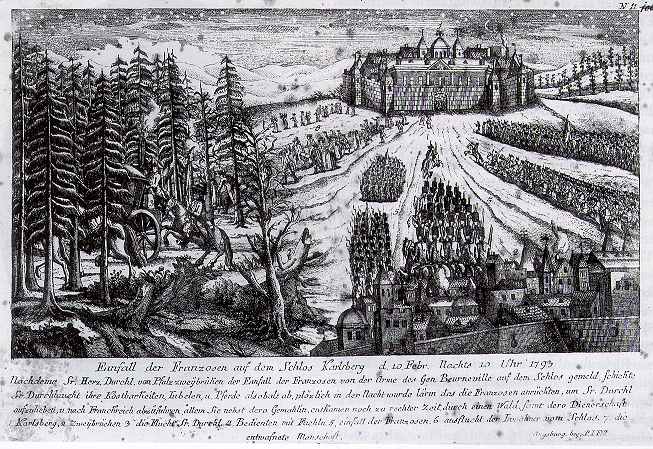 N 11
Einfall der Franzosen auf dem Schlos Karlsberg d. 10 Febr. Nachts 10 Uhr 1793
Nachdeme Sr. Herz. Durchl. von Pfalz zweijbrüken der Einfall der Franzosen von der Armee des Gen. Beurnonville auf dem Schlos gemeld. schickte
Sr. Durchlaucht ihre Kostbarkeiten, u. Pferde alsobald ab, plözlich in der Nacht wurde Lärm das die Franzosen anrückten, um Sr. Durchl
aufzuheben, u. nach Franckreich abzuführen allein Sie nebst dero Gemahlin, entkamen noch zu rechter Zeit, durch einen Wald, samt dero Dienerschaft
1 Karlsberg, 2 Zweijbrücken 3 die Flucht Sr. Durchl. 4 Bedienten mit Fakeln, 5 einfall der Franzosen, 6 ausflucht der Inwohner vom Schlos, 7 die
entwafnete Manschaft.
Augsburg